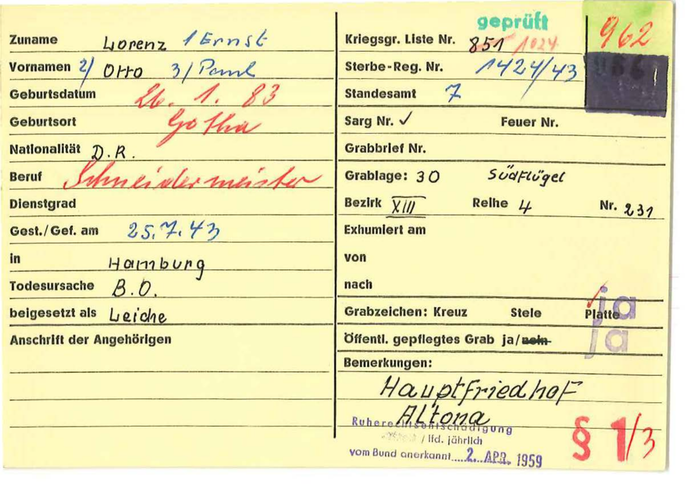 Zuname Lorenz 1 Ernst
Vornamen 2/ Otto 3/ Paul
Geburtsdatum 26. 1. 83
Geburtsort Gotha
Nationalität D.R.
Beruf Schneidermeister
Dienstgrad
Gest./Gef. am 25.7.43
in Hamburg
Todesursache B.O.
beigesetzt als Leiche
Anschrift der Angehörigen
geprüft
962
Kriegsgr. Liste Nr. 851 / 1024
Sterbe-Reg. Nr. 1424/43
Standesamt 7
Sarg Nr. ✓ Feuer Nr.
Grabbrief Nr.
Grablage: 30 Südflügel
Bezirk XIII Reihe 4 Nr. 231
Exhumiert am
von
nach
Grabzeichen: Kreuz Stele Platte ja
Öffentl. gepflegtes Grab ja/nein ja
Bemerkungen:
Hauptfriedhof
Altona
Ruherechtsentschädigung
/ lfd. jährlich
vom Bund anerkannt 2. APR. 1959
§ 1/3